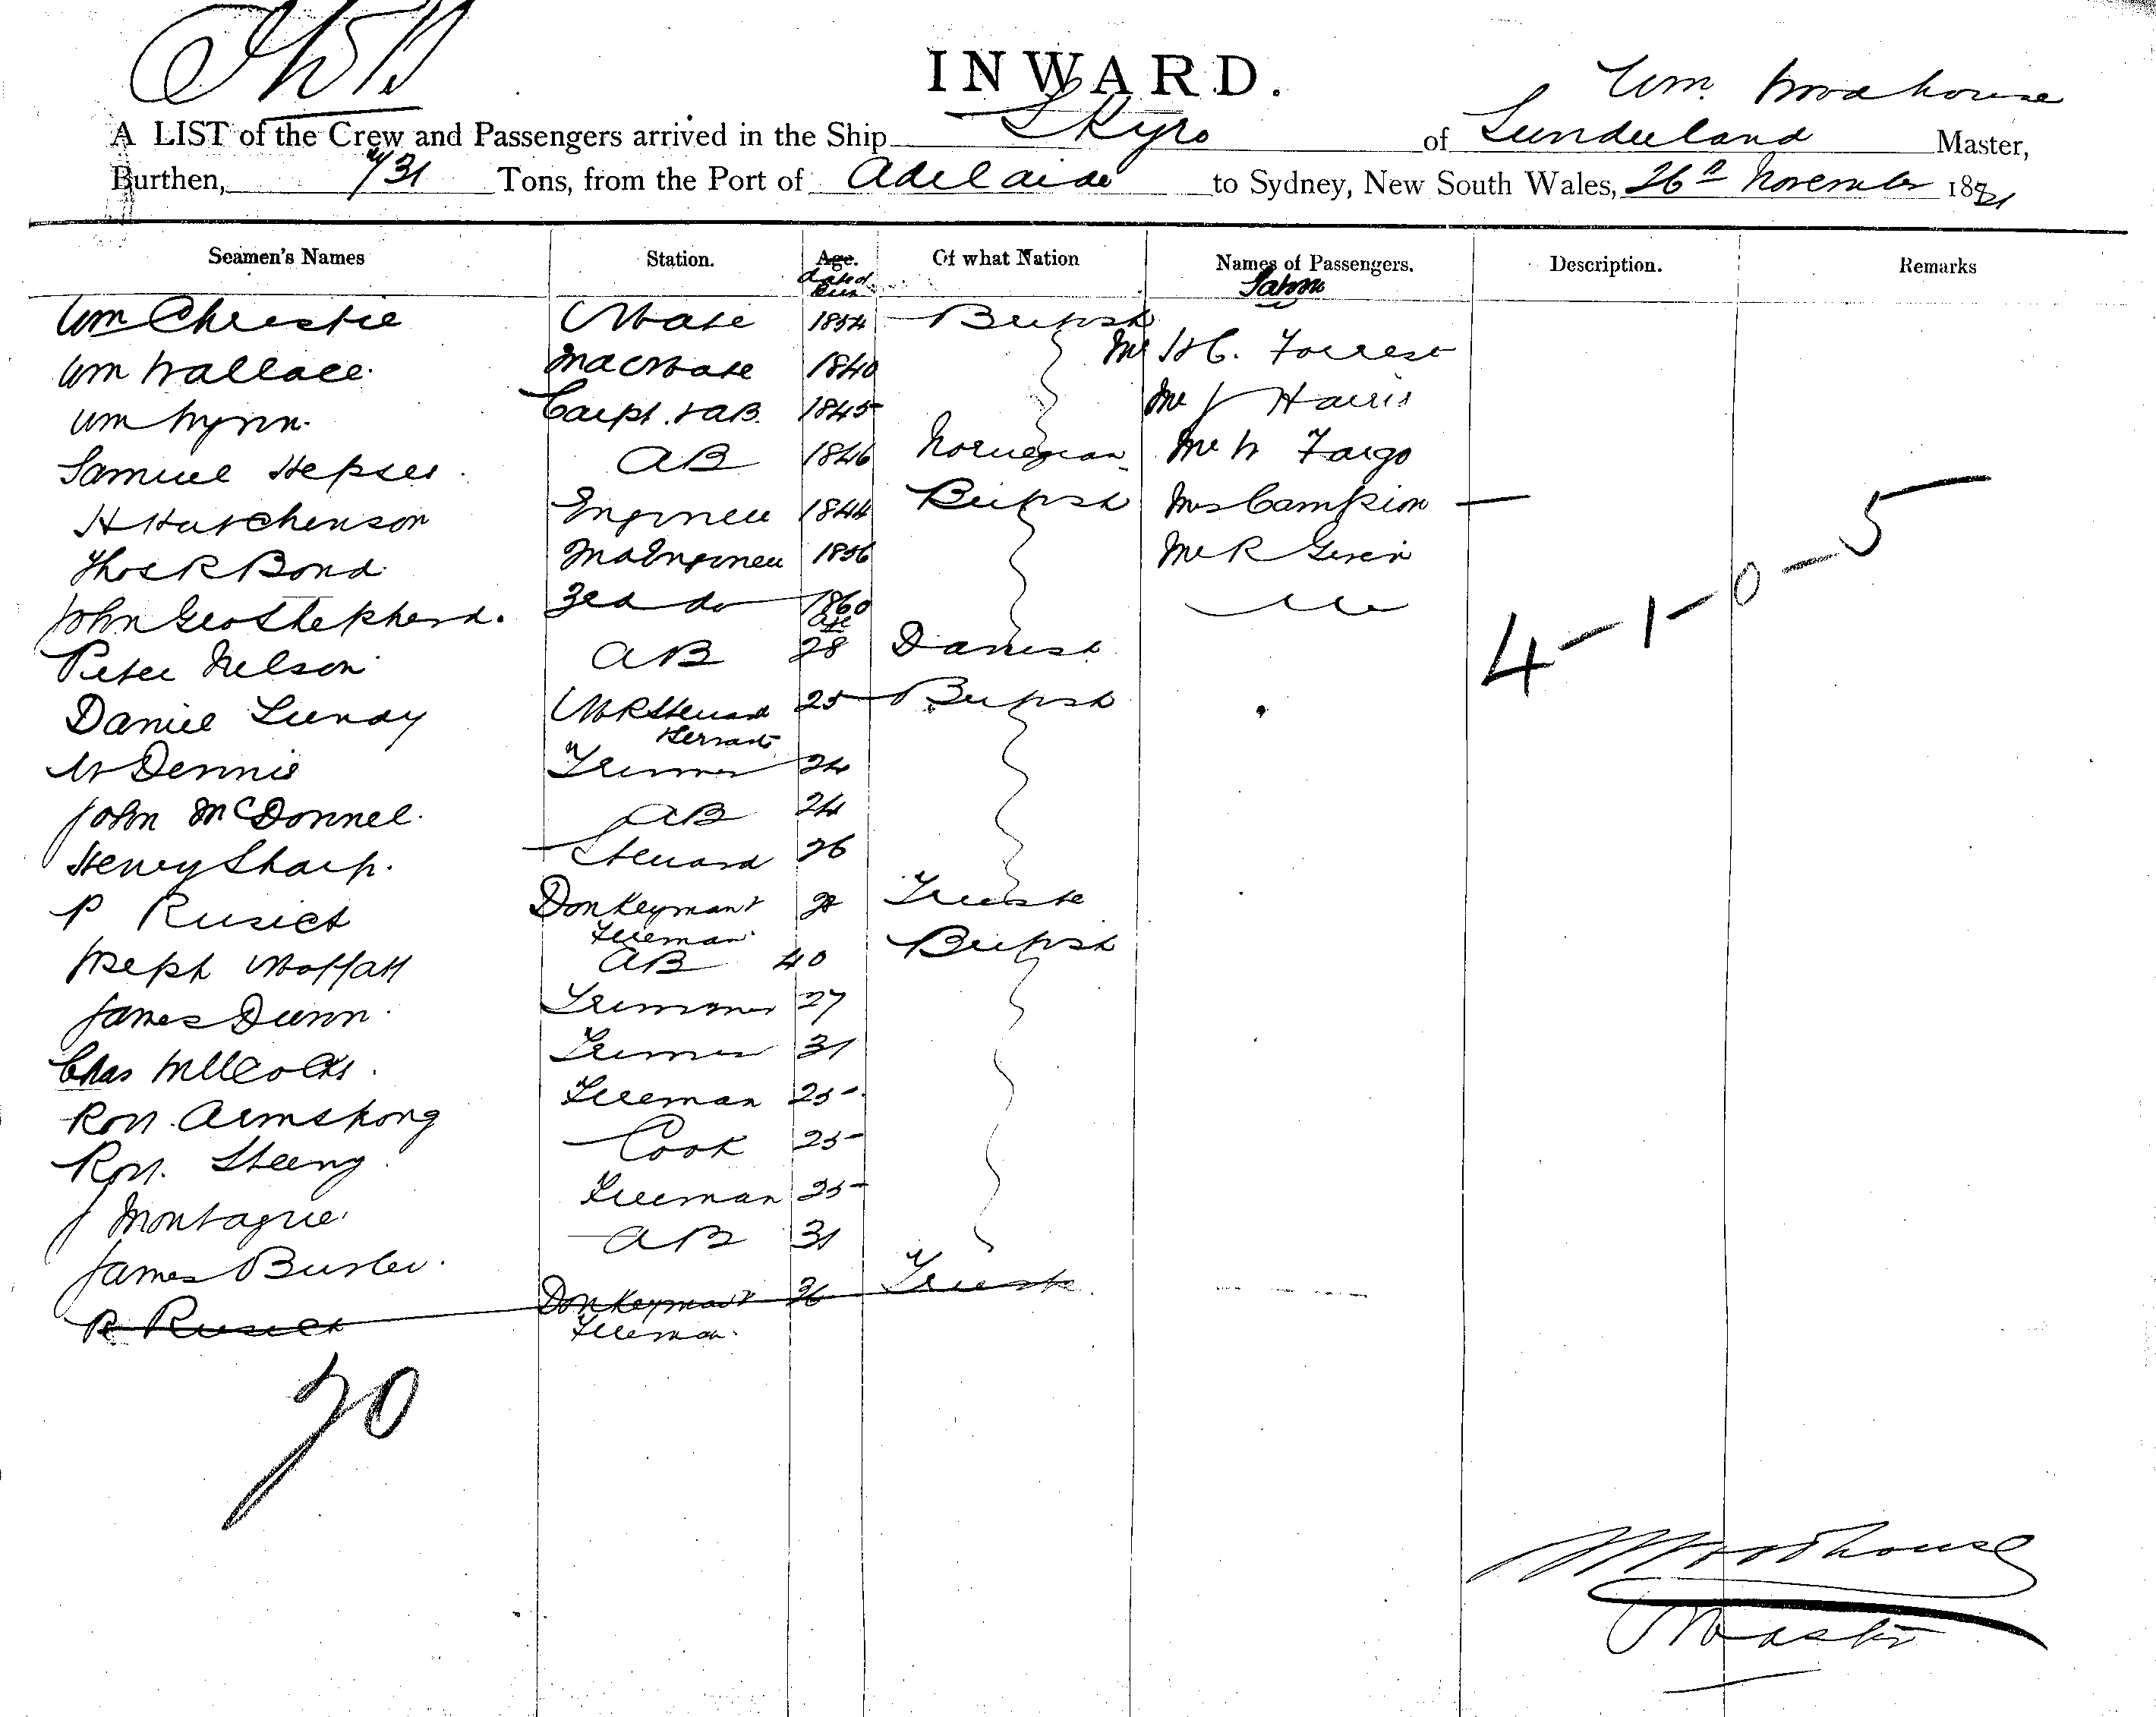 INWARD.
Wm. Woodhouse
A LIST of the Crew and Passengers arrived in the Ship Skyro of Sunderland Master,
Burthen, 731 Tons, from the Port of Adelaide to Sydney, New South Wales, 26th November 1881
Seamen's Names Station. Age. Of what Nation Names of Passengers. Description. Remarks
Saloon
Wm Christie Mate 1854 British Mr H C. Forrest
Wm Wallace 2nd Mate 1840 Mr J Harris
Wm Wynn. Carpt. & AB. 1845
Samuel AB 1846 Norwegian Mr W Fargo
H Hutchenson Engineer 1844 British Mrs Campion
Thos R Bond 2nd Engineer 1856 Mr R
John Geo Shepherd. 3rd do 1860
Age
Peter Nelson AB 28 Danish
Daniel Lundy MR Steward 25 British
Servant
W Dennis Trimmer 24
John McDonnel. AB 24
Henry Sharp. Steward 26
P Rusich Donkeyman & Trieste
Fireman
Joseph Moffatt AB 40 British
James Dunn Trimmer 27
Chas Willcocks. Trimmer 31
Robt. Armstrong Fireman 25
Robt. Cook 25
J Montague Fireman 25
James Butler. AB 31
P Rusich Donkeyman & 26 Trieste
Fireman.
4-1-0-5
20
W Woodhouse
Master